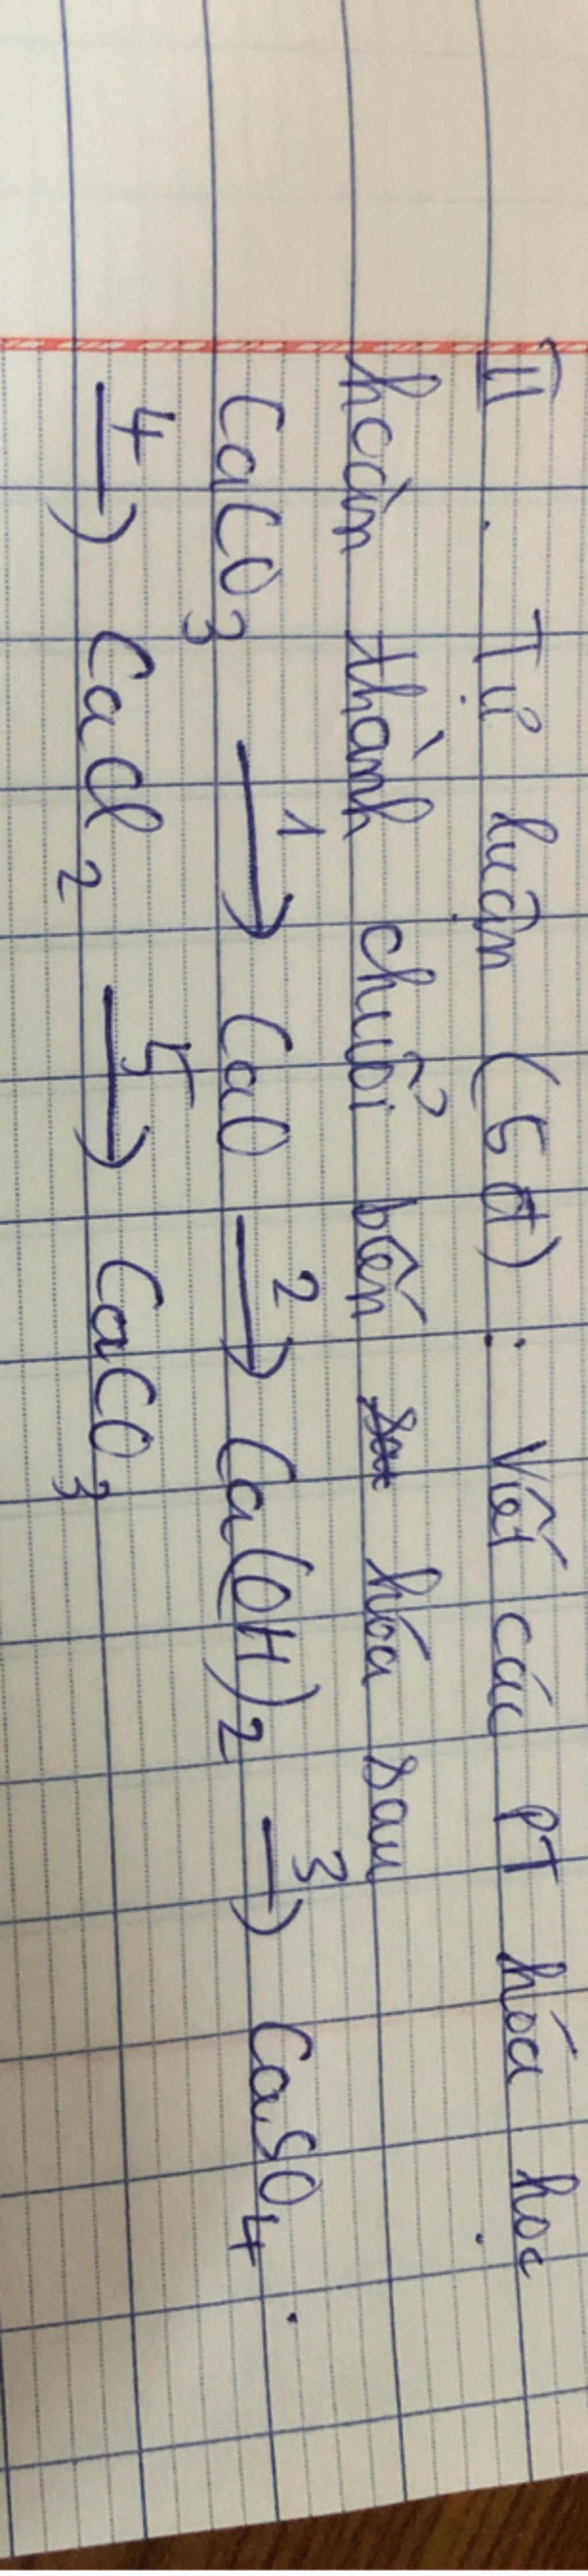 II. Tự luận (5đ): Viết các PT hóa học
hoàn thành chuỗi biến hóa sau
CaCO3 1→ CaO 2→ Ca(OH)2 3→ CaSO4.
4→ CaCl2 5→ CaCO3